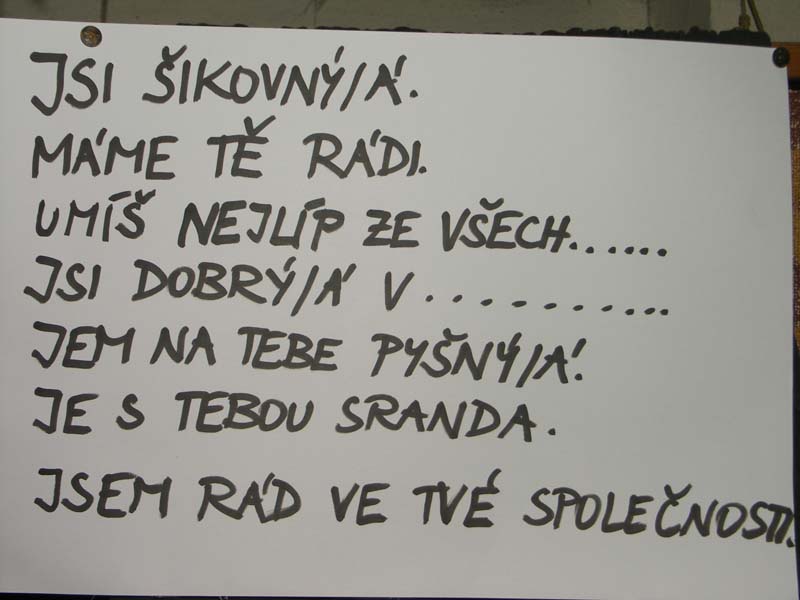 JSI ŠIKOVNÝ/Á.
MÁME TĚ RÁDI.
UMÍŠ NEJLÍP ZE VŠECH......
JSI DOBRÝ/Á V ...........
JEM NA TEBE PYŠNÝ/Á!
JE S TEBOU SRANDA.
JSEM RÁD VE TVÉ SPOLEČNOSTI.